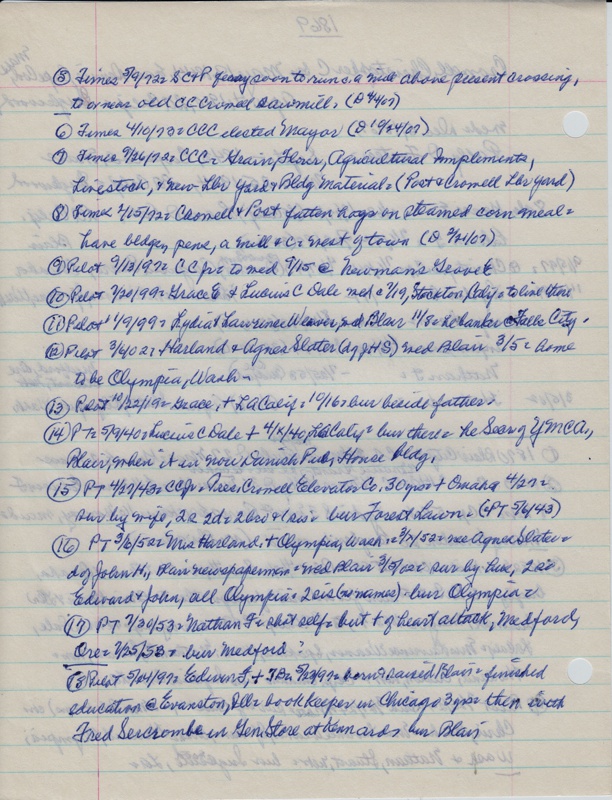 1869
⑤ Times 5/9/72 = SC & P ferry soon to run = a mill above present crossing,
to or near old CC Crowell sawmill = (D 4/4/07)
⑥ Times 4/10/73 = CCC elected Mayor (D 10/24/07)
⑦ Times 9/26/72 = CCC = Grain, Flour, Agricultural Implements,
Livestock, & new Lbr Yard & Bldg Material = (Post & Crowell Lbr yard)
⑧ Times 2/15/72 = Crowell & Post fatten hogs on steamed corn meal =
have bldgs, pens, a mill & c = west of town (D 3/21/07)
⑨ Pilot 9/13/97 = CC Jr = to wed 9/15 @ Newmans Grove
⑩ Pilot 7/20/99 = Grace E & Lucius C Dale wed @ 7/19, Stockton, Calif = to live there
⑪ Pilot 11/9/99 = Lydia & Lawrence Weaver, wed Blair 11/8 = he banker Falls City
⑫ Pilot 3/6/02 = Harland & Agnes Slater (dg JHS) wed Blair 3/5 = home
to be Olympia, Wash =
⑬ Pilot 10/22/19 = Grace, + LA Calif = 10/16 = bur beside father =
⑭ PT = 5/9/40 = Lucius C Dale + 4/ /40, LA Calif = bur there = he Secr of YMCA,
Blair, when it in now Danish Pub, House bldg.
⑮ PT 4/29/43 = CC Jr = Pres, Crowell Elevator Co, 30 yrs + Omaha 4/27 =
sur by wife, 2s 2d = 2 bro & 1 sis = bur Forest Lawn = (& PT 5/6/43)
⑯ PT 3/6/52 = Mrs Harland, + Olympia, Wash = 3/ /52 = nee Agnes Slater =
d of John H, Blair newspaperman = wed Blair 3/5/02 = sur by hus, 2 s =
Edward & John, all Olympia = 2 sis (no names) = bur Olympia =
⑰ PT 7/30/53 = Nathan F = shot self = but + of heart attack, Medford,
Ore = 7/25/53 = bur Medford ?
⑱ Pilot 5/24/97 = Edwin F, + = 5/23/97 = born & raised Blair = finished
education @ Evanston, Ill = bookkeeper in Chicago 3 yrs = then with
Fred Sercrombe in Gen Store at Kennards = bur Blair